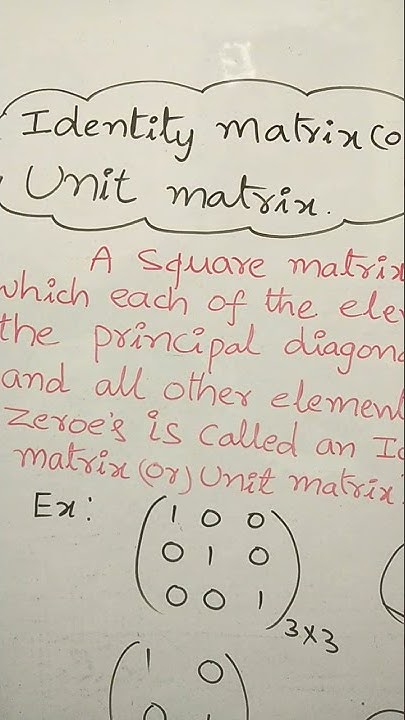 Identity matrix (o
Unit matrix.
A Square matrix
which each of the ele
the principal diagon
and all other element
Zeroe's is called an I
matrix (or) Unit matrix
Ex:
1 0 0
0 1 0
0 0 1
3x3
1 0
0 1